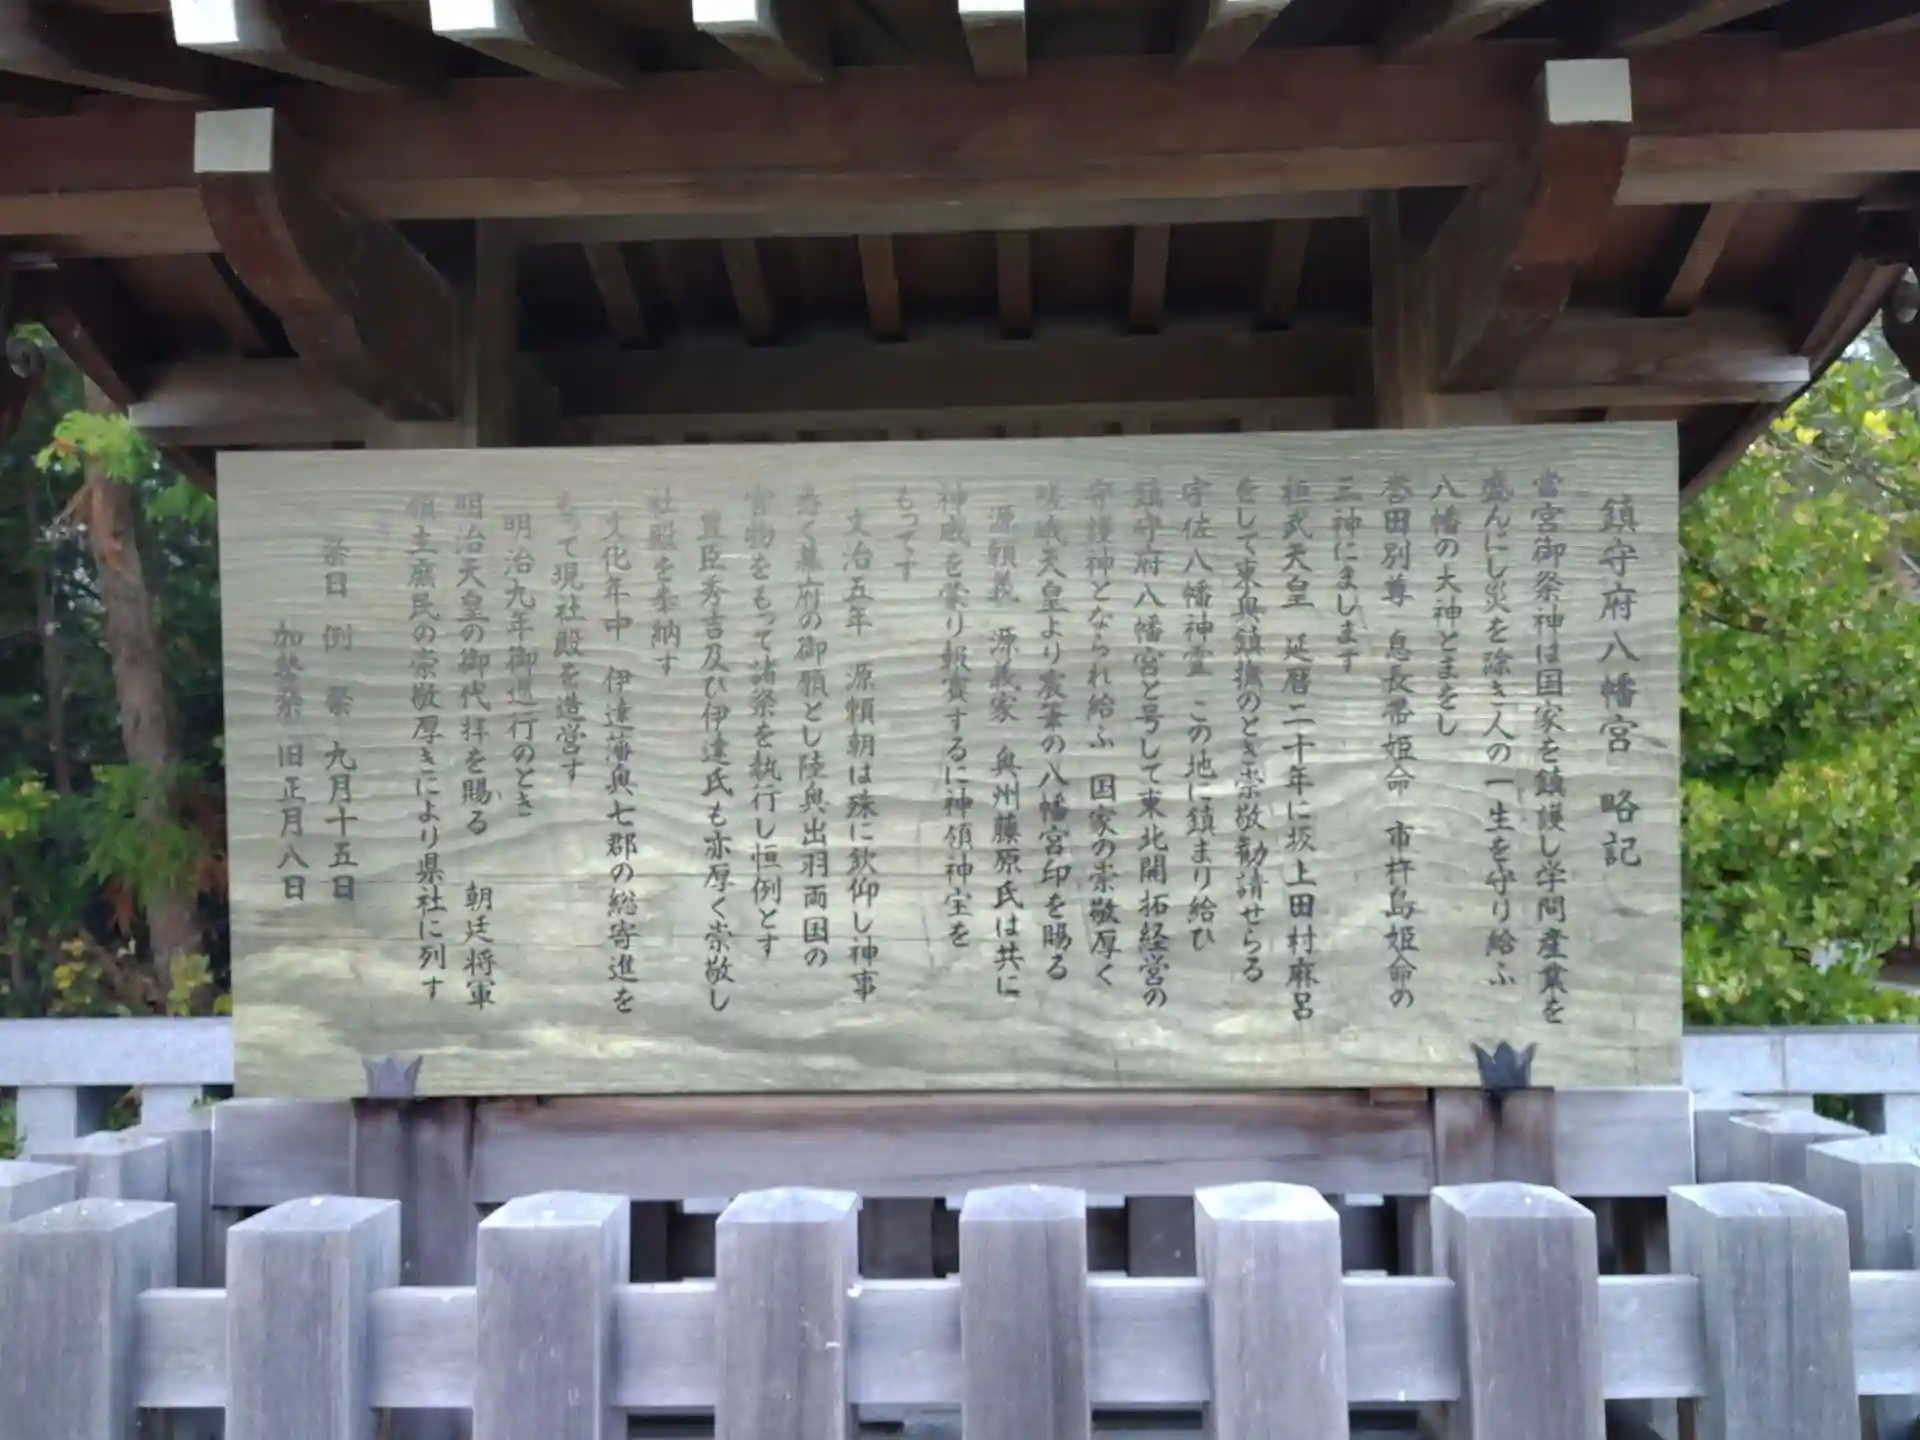 鎮守府八幡宮 略記
當宮御祭神は国家を鎮護し学問産業を
盛んにし災を除き人の一生を守り給ふ
八幡の大神とまをし
誉田別尊 息長帯姫命 市杵島姫命の
三神にまします
桓武天皇 延暦二十年に坂上田村麻呂
をして東奥鎮撫のとき崇敬勧請せらる
宇佐八幡神霊 この地に鎮まり給ひ
鎮守府八幡宮と号して東北開拓経営の
守護神となられ給ふ 国家の崇敬厚く
嵯峨天皇より宸筆の八幡宮印を賜る
源頼義 源義家 奥州藤原氏は共に
神威を蒙り報賽するに神領神宝を
もってす
文治五年 源頼朝は殊に欽仰し神事
悉く幕府の御願とし陸奥出羽両国の
官物をもって諸祭を執行し恒例とす
豊臣秀吉及び伊達氏も亦厚く崇敬し
社殿を奉納す
文化年中 伊達藩奥七郡の総寄進を
もって現社殿を造営す
明治九年御巡行のとき
明治天皇の御代拝を賜る 朝廷将軍
領主庶民の崇敬厚きにより県社に列す
祭日 例 祭 九月十五日
加勢祭 旧正月八日